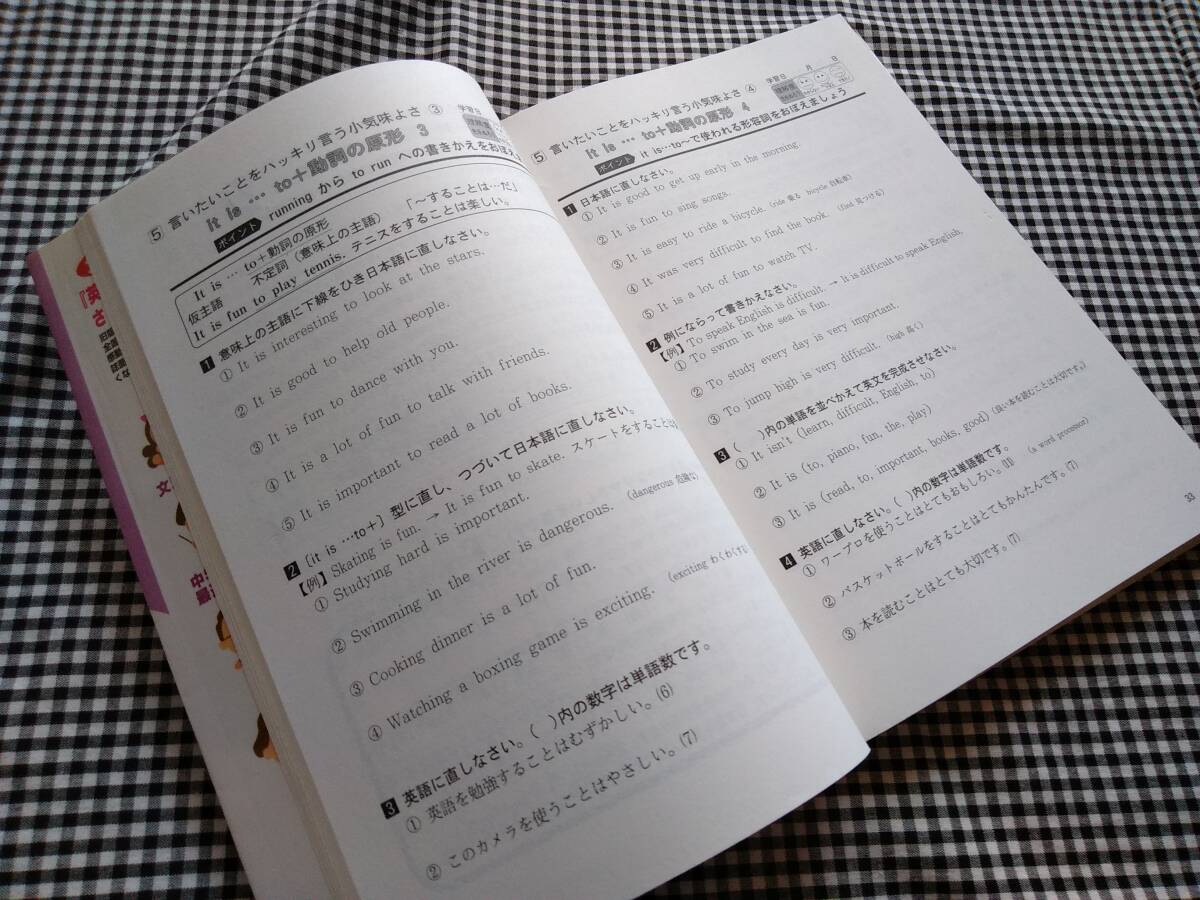 ⑤ 言いたいことをハッキリ言う小気味よさ ③
学習日
It is … to+動詞の原形 3
ポイント running から to run への書きかえをおぼえま
It is … to+動詞の原形 「～することは…だ」
仮主語 不定詞(意味上の主語)
It is fun to play tennis. テニスをすることは楽しい。
1 意味上の主語に下線をひき日本語に直しなさい。
① It is interesting to look at the stars.
② It is good to help old people.
③ It is fun to dance with you.
④ It is a lot of fun to talk with friends.
⑤ It is important to read a lot of books.
2 〔it is …to+〕型に直し、つづいて日本語に直しなさい。
【例】 Skating is fun. → It is fun to skate. スケートをすることは
① Studying hard is important.
② Swimming in the river is dangerous. (dangerous 危険な)
③ Cooking dinner is a lot of fun.
④ Watching a boxing game is exciting. (exciting わくわくする
3 英語に直しなさい。( )内の数字は単語数です。
① 英語を勉強することはむずかしい。(6)
② このカメラを使うことはやさしい。(7)
⑤ 言いたいことをハッキリ言う小気味よさ ④
学習日 月 日
It is … to+動詞の原形 4
ポイント it is…to～で使われる形容詞をおぼえましょう
1 日本語に直しなさい。
① It is good to get up early in the morning.
② It is fun to sing songs.
③ It is easy to ride a bicycle. (ride 乗る bicycle 自転車)
④ It was very difficult to find the book. (find 見つける)
⑤ It is a lot of fun to watch TV.
2 例にならって書きかえなさい。
【例】 To speak English is difficult. → It is difficult to speak English.
① To swim in the sea is fun.
② To study every day is very important.
③ To jump high is very difficult. (high 高く)
3 ( )内の単語を並べかえて英文を完成させなさい。
① It isn't (learn, difficult, English, to)
② It is (to, piano, fun, the, play)
③ It is (read, to, important, books, good) (良い本を読むことは大切です。)
4 英語に直しなさい。( )内の数字は単語数です。
① ワープロを使うことはとてもおもしろい。(11) (a word processor)
② バスケットボールをすることはとてもかんたんです。(7)
③ 本を読むことはとても大切です。(7)
33